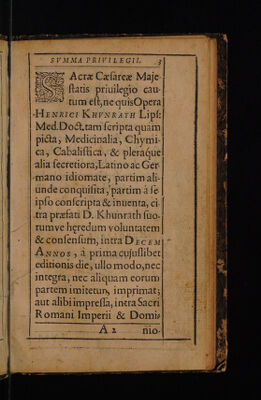 SVMMA PRIVILEGII. 3
SAcræ Cæsareæ Maje-
statis priuilegio cau-
tum est, ne quis Opera
HENRICI KHVNRATH Lips:
Med. Doct. tam scripta quam
picta, Medicinalia, Chymi-
ca, Cabalistica, & pleraque
alia secretiora, Latino ac Ger
mano idiomate, partim ali-
unde conquisita, partim á se
ipso conscripta & inuenta, ci-
tra præfati D. Khunrath suo-
rumve hęredum voluntatem
& consensum, intra DECEM
ANNOS, à prima cujuslibet
editionis die, ullo modo, nec
integra, nec aliquam eorum
partem imitetur, imprimat;
aut alibi impressa, intra Sacri
Romani Imperii & Domi-
A 2 nio-